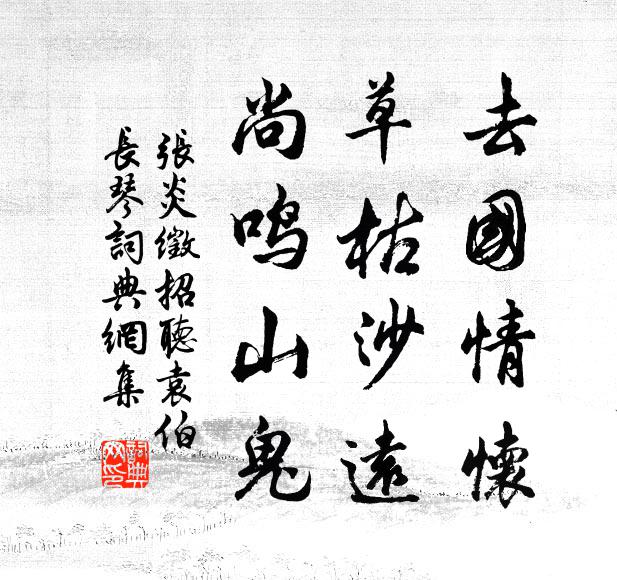 去國情懷
草枯沙遠
尚鳴山鬼
張炎徵招聽袁伯
長琴詞典網集